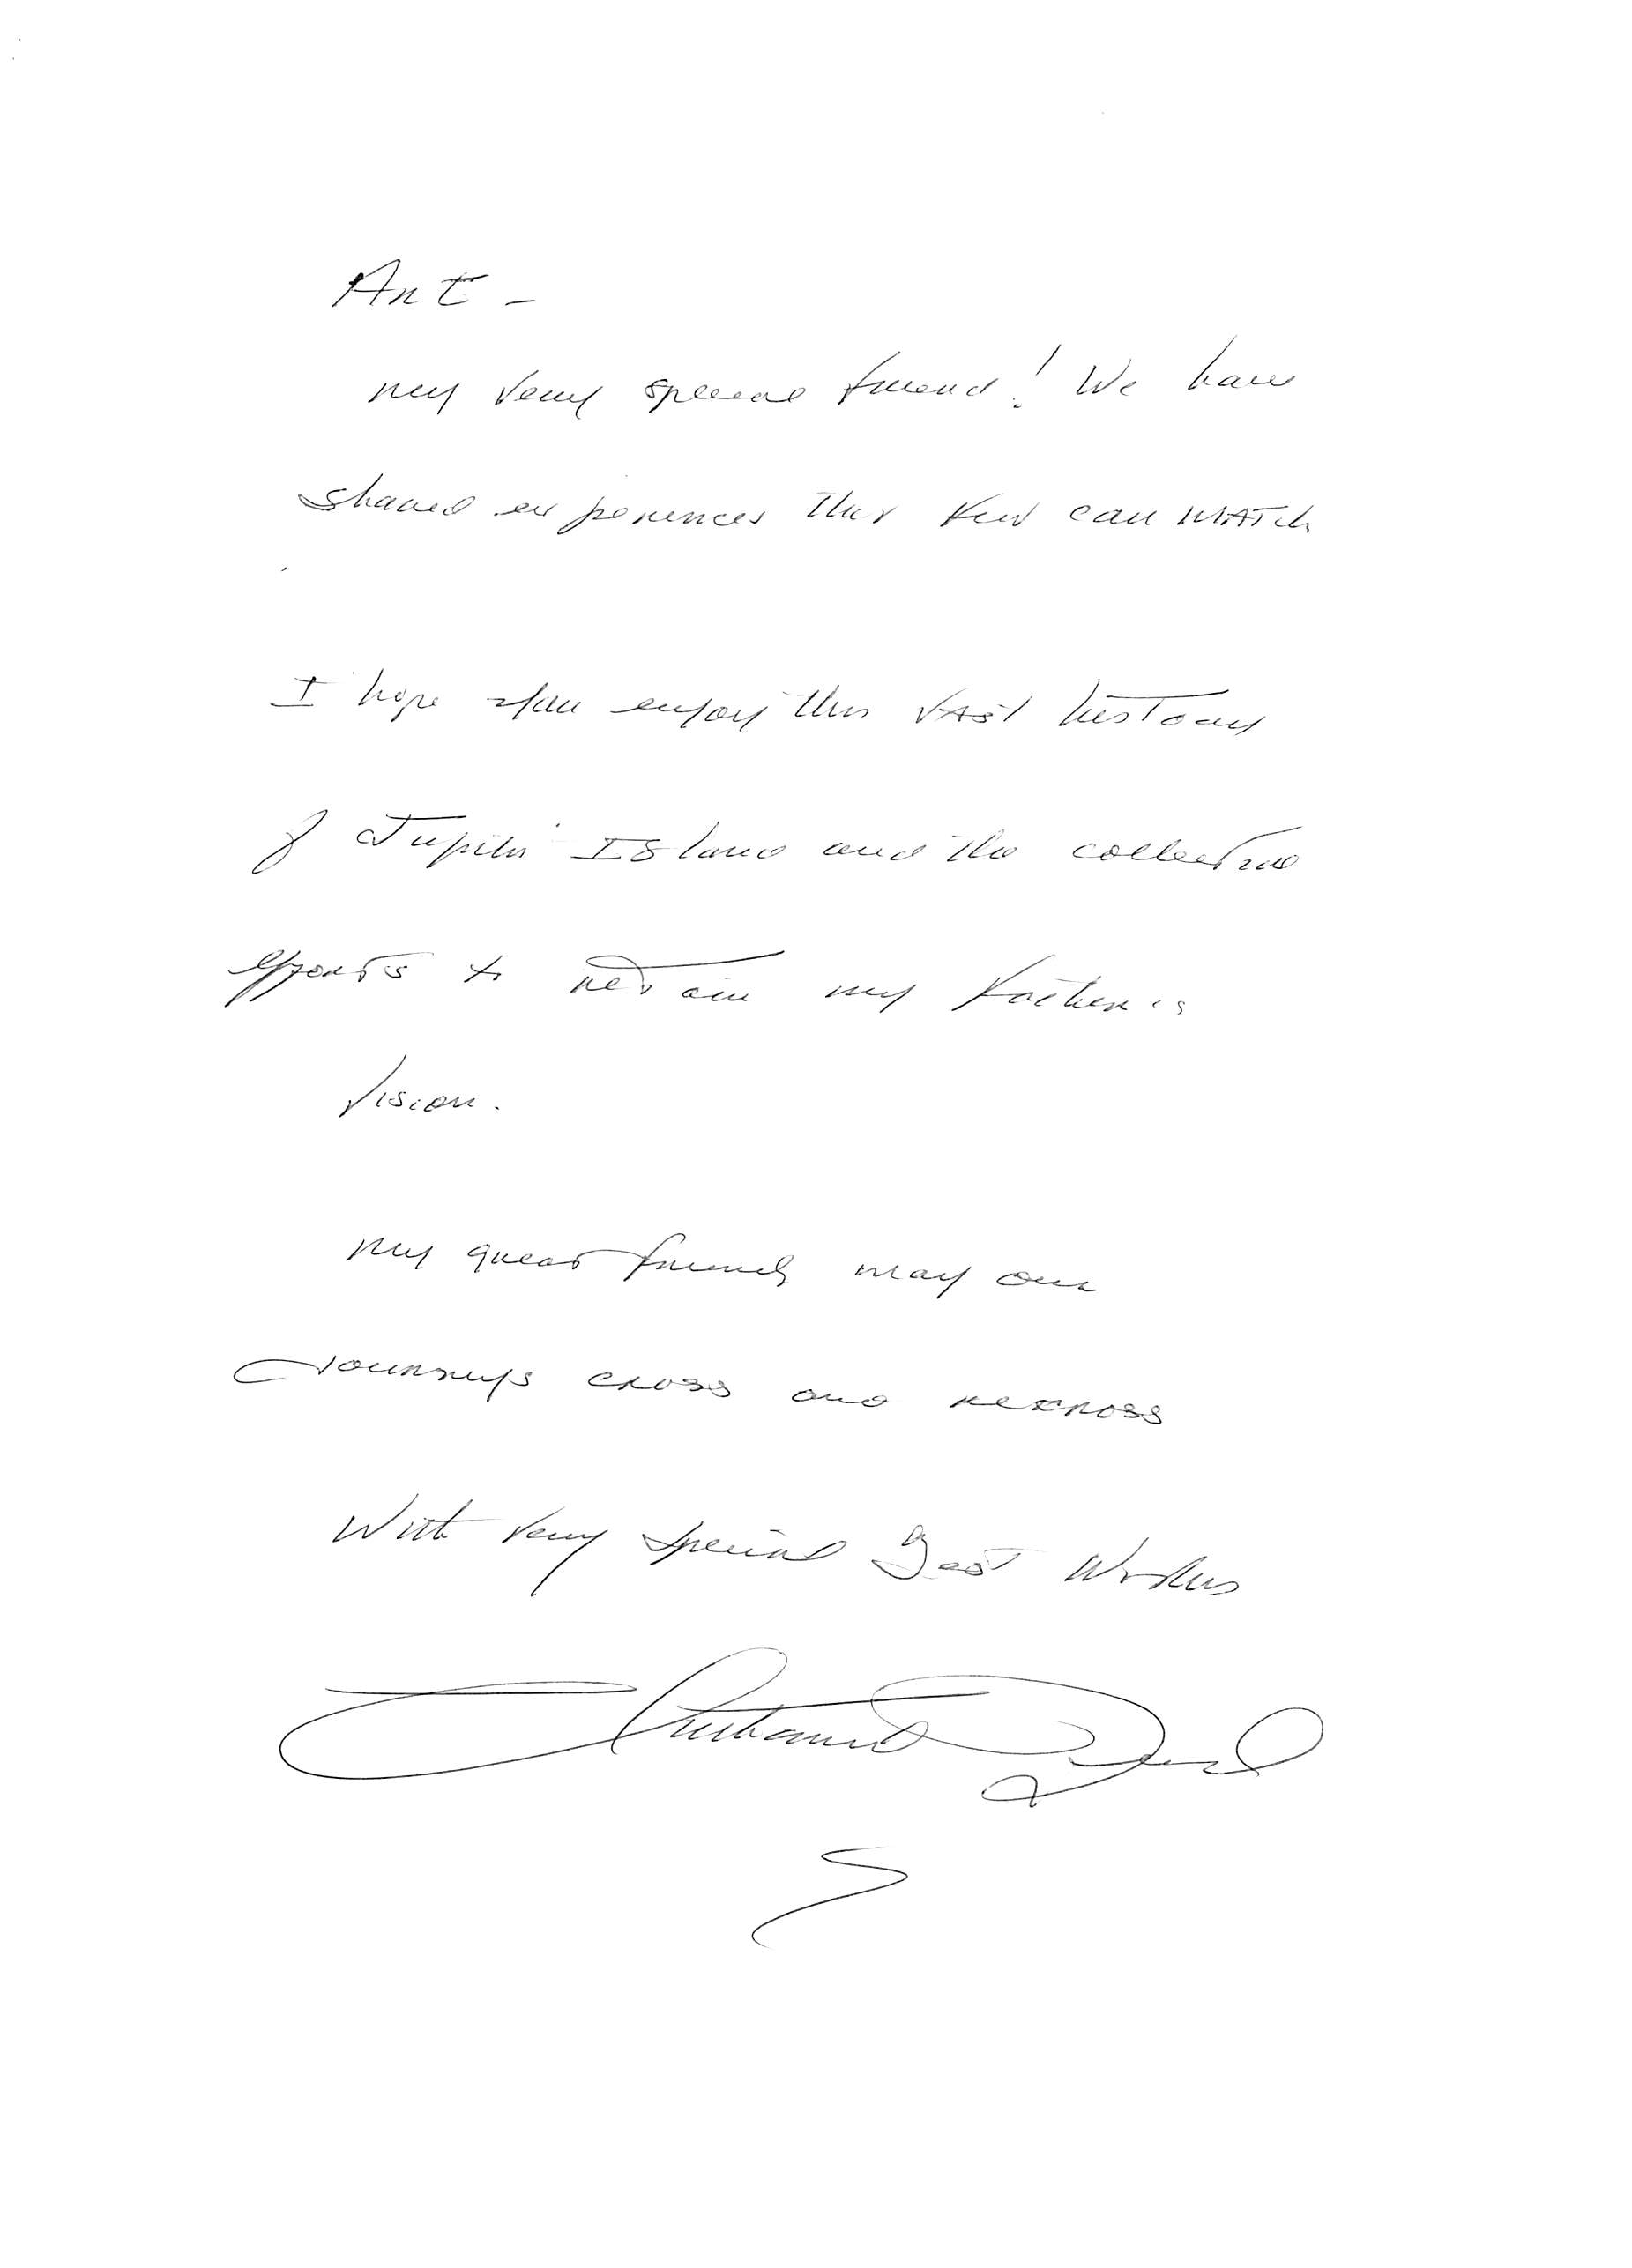 Art -
my very special friend! We have
shared experiences that few can match
I hope you enjoy this vast history
of Jupiter Island and the collective
efforts to retain my father's
vision.
My great friend, may our
Journeys cross and recross
With very special Best Wishes